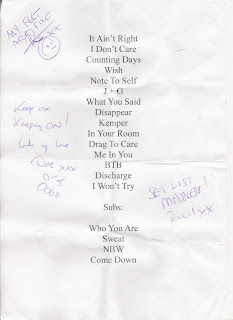 MY FEET
ARE FINE
xx
It Ain't Right
I Don't Care
Counting Days
Wish
Note To Self
J + G
What You Said
Disappear
Kemper
In Your Room
Drag To Care
Me In You
BTB
Discharge
I Won't Try
Keep on
Keeping ON!
of love
xxx
SET LIST
xx
Subs:
Who You Are
Sweat
NBW
Come Down